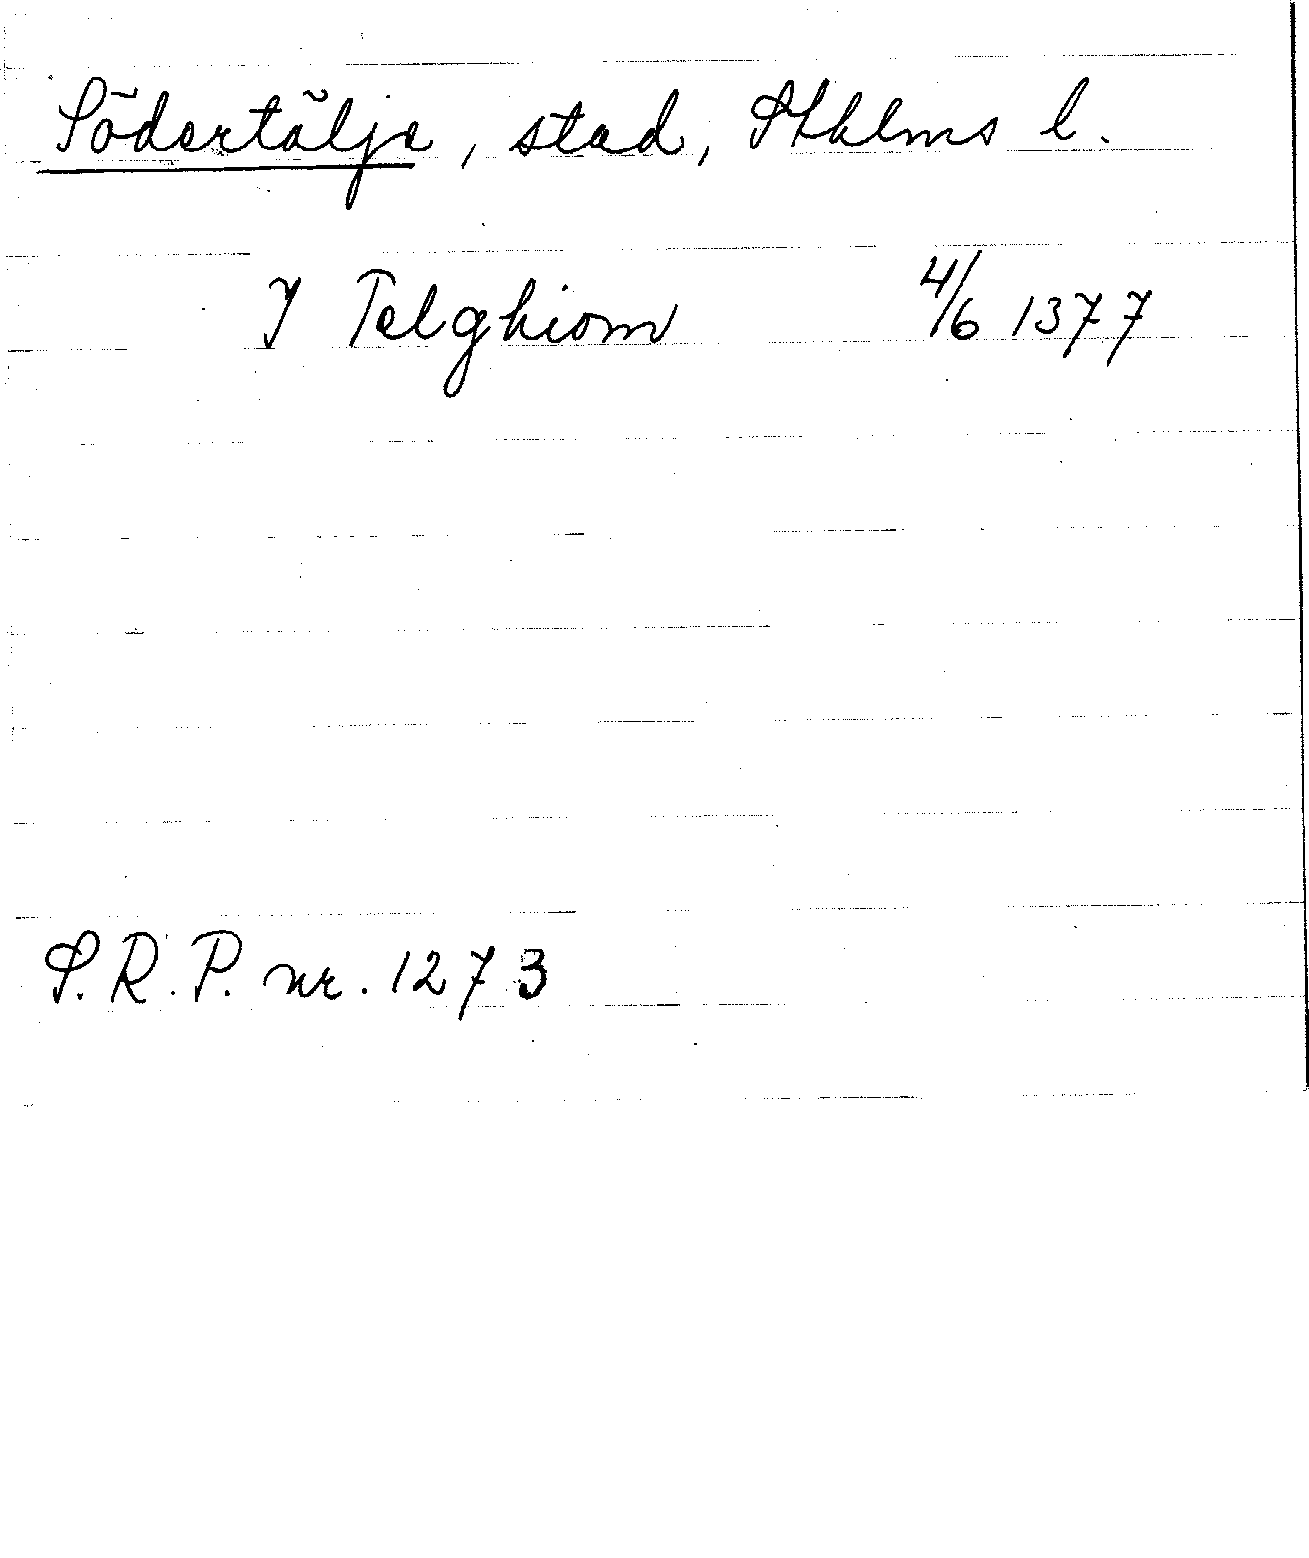 Södertälje, stad, Sthlms l.
J Telghiom 4/6 1377
S.R.P. nr. 1273